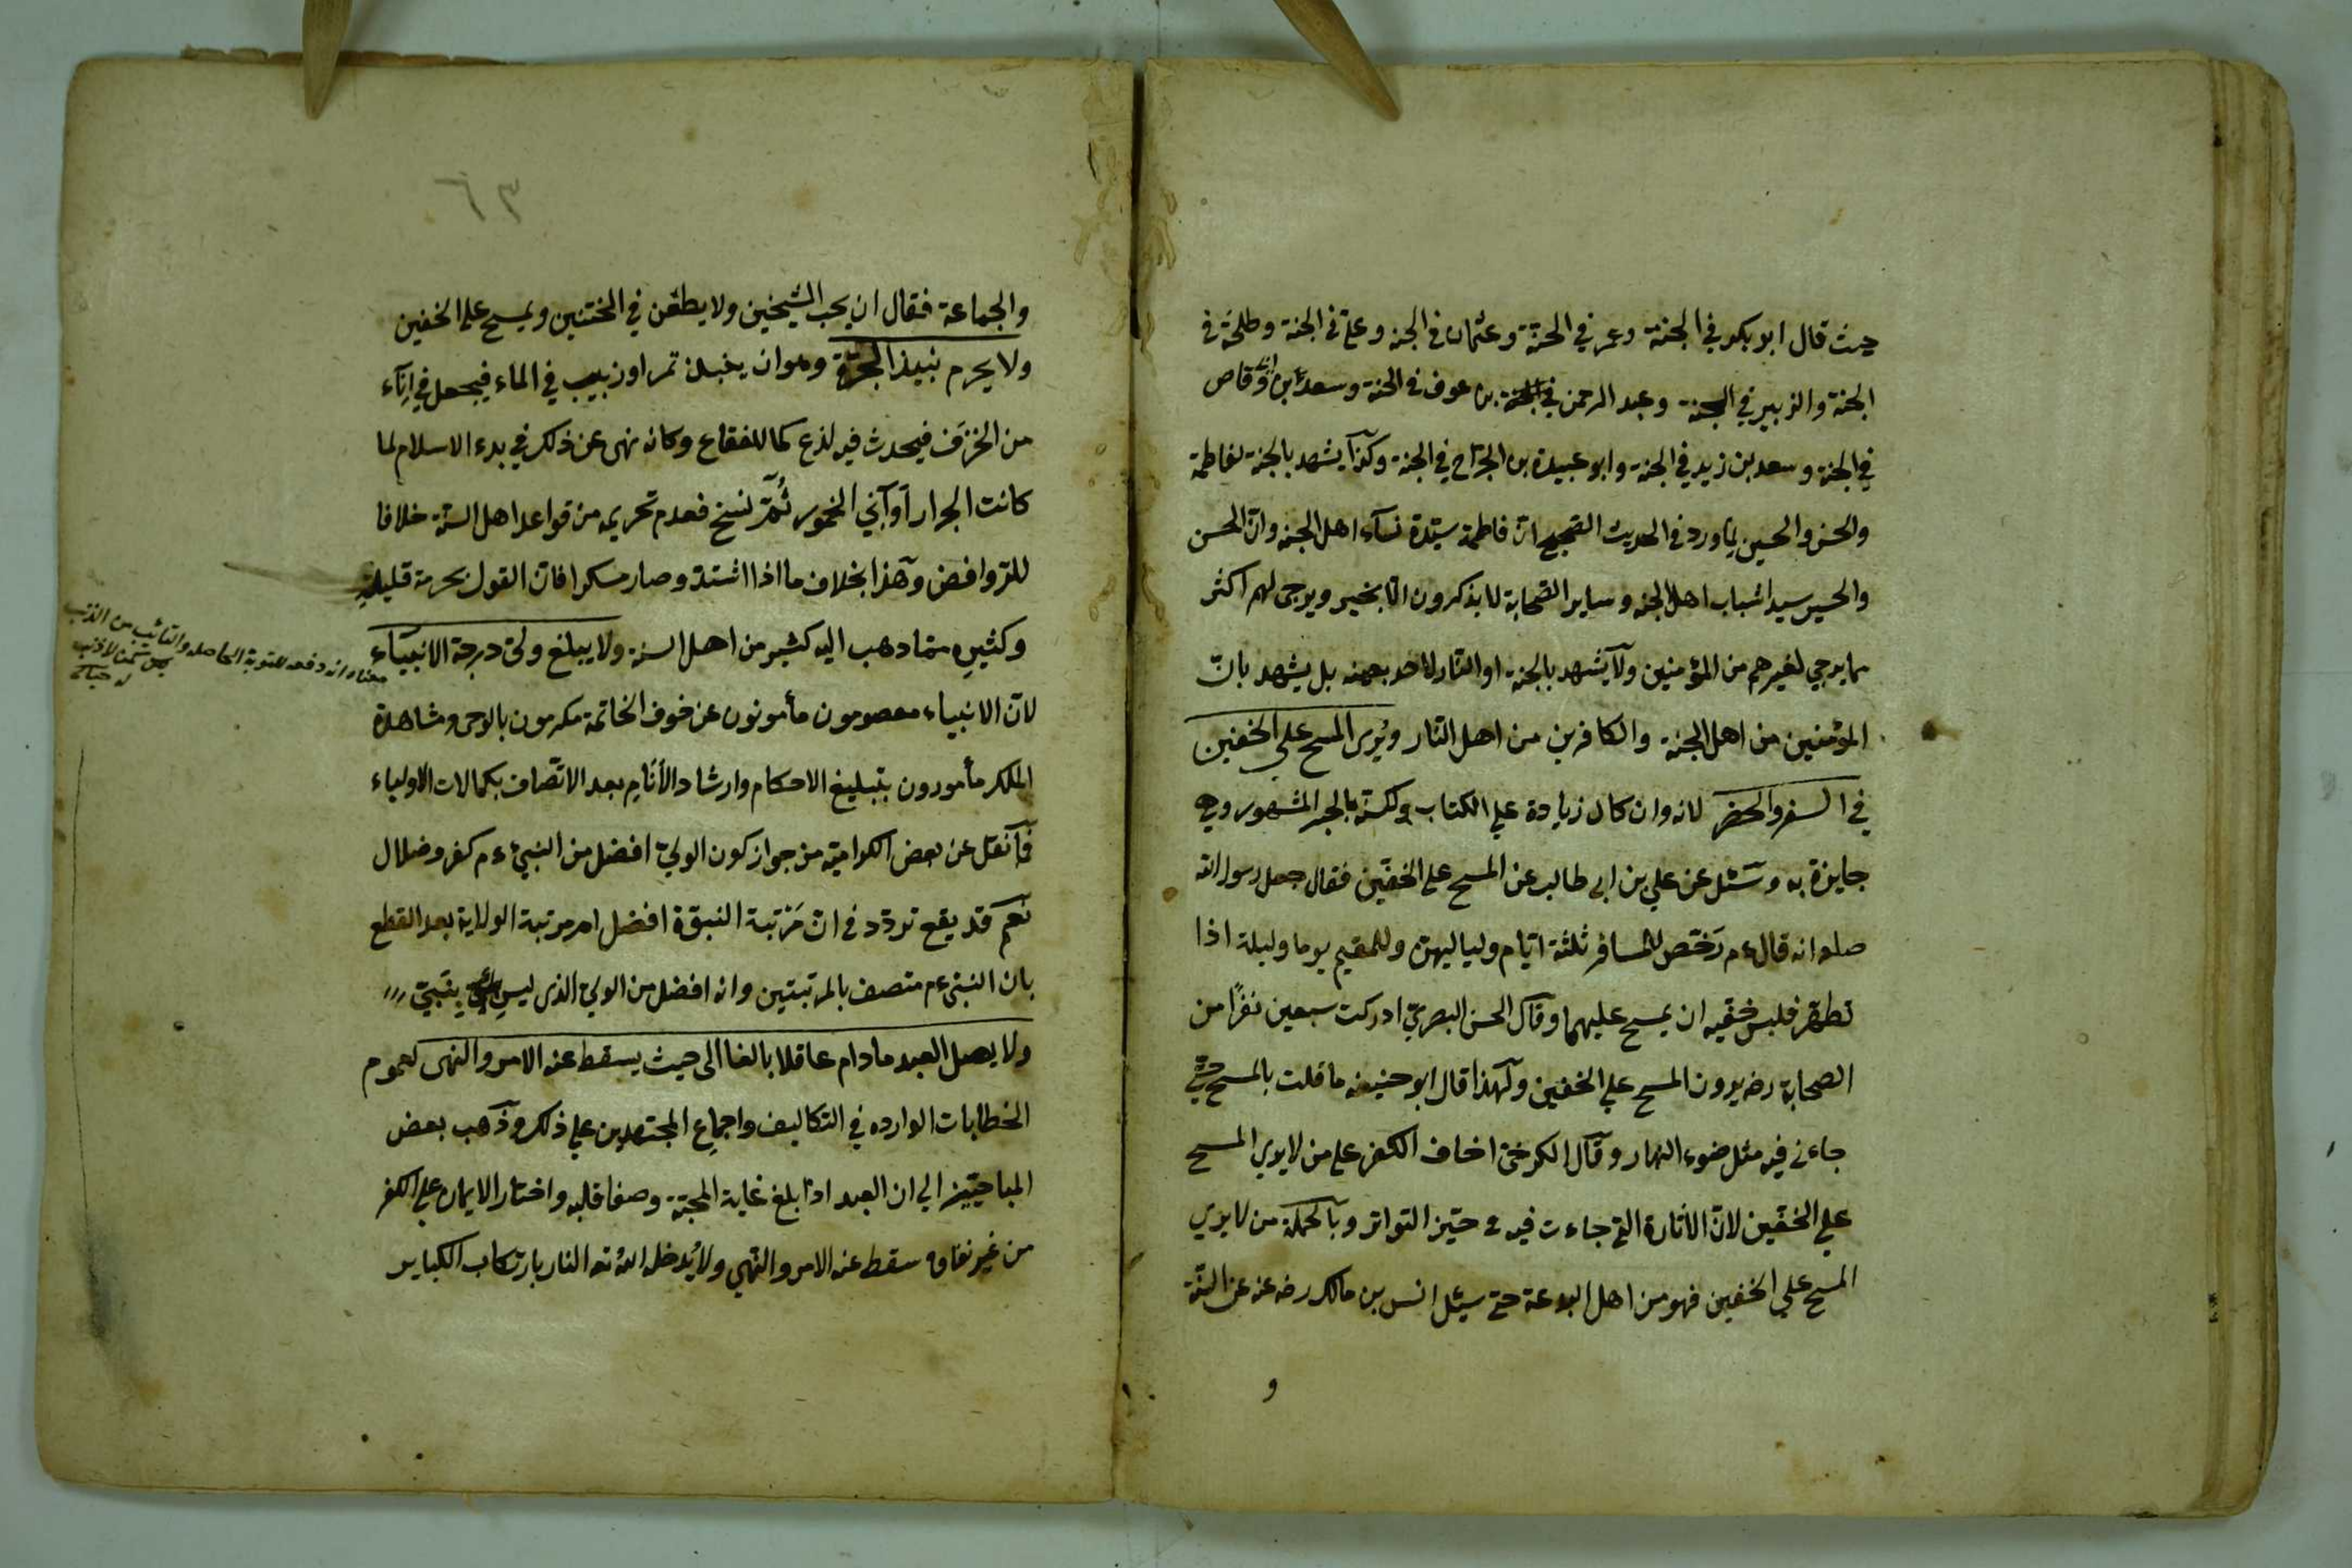 حيث قال ابو بكر في الجنة وعمر في الجنة وعثمان في الجنه وعلي في الجنة وطلحة في
الجنة والزبير في الجنة وعبد الرحمن بن عوف في الجنة وسعد بن ابي وقاص
في الجنة وسعد بن زيد في الجنة وابو عبيدة بن الجراح في الجنة وكذا يشهد بالجنة لفاطمة
والحسن والحسين لما ورد في الحديث الصحيح ان فاطمة سيدة نساء اهل الجنه وان الحسن
والحسين سيدا شباب اهل الجنه وساير الصحابة لا يذكرون الا بخير ويرجى لهم اكثر
مما يرجي لغيرهم من المؤمنين ولا يشهد بالجنة او النار لاحد بعينه بل يشهد بانّ
المؤمنين من اهل الجنة والكافرين من اهل النار ويُرى المسح على الخفين
في السفر والحضر لانه وان كان زيادة علي الكتاب ولكنه بالخبر المشهور وهي
جايزة به وسئل عن علي بن ابي طالب عن المسح علي الخفّين فقال جعل رسول الله
صلعم انه قال ءم رَخّص للمسافر ثلثة ايّام ولياليهن وللمقيم يوما وليلة اذا
تطهّر فلبس خفّيه ان يمسح عليهما وقال الحسن البصريّ ادركت سبعين نفرًا من
الصحابة رضه يرون المسح علي الخفين ولهذا قال ابو حنيفه ما قلت بالمسح حتي
جاءني فيه مثل ضوء النهار وقال الكرخيّ اخاف الكفر علي من لا يري المسح
علي الخفّين لانّ الاثارة التي جاءت فيه في حيّز التواتر وبالجملة من لا يري
المسح علي الخفين فهو من اهل البدعة حتي سئل انس بن مالك رضه عنه عن السنّة
و
٦٣
والجماعة فقال ان يحب الشيخين ولا يطعن في الختنين ويمسح علي الخفين
ولا يحرم نبيذ الجرّة وهو ان ينبذ تمر او زبيب في الماء فيجعل في اناء
من الخزف فيحدث فيه لذع كما للفقاع وكانه نهى عن ذلك في بدء الاسلام لما
كانت الجرار أوآني الخمور ثُمّ نسخ فعدم تحريمه من قواعد اهل السنّة خلافا
للروافض وهذا بخلاف ما اذا اشتد وصار مسكرا فان القول بحرمة قليلهِ
وكثيرهِ ممّا ذهب اليه كثير من اهل السنة ولا يبلغ وليّ درجة الانبياء
لانّ الانبياء معصومون مأمونون عن خوف الخاتمة مكرمون بالوحى ومشاهدة
الملك مأمورون بتبليغ الاحكام وارشاد الأنام بعد الاتّصاف بكمالات الاولياء
فما نقل عن بعض الكراميّة من جواز كون الوليّ افضل من النبيّ ءم كفر وضلال
نعم قد يقع تردّد في انّ مَرْتبة النبوّة افضل ام مرتبة الولاية بعد القطع
بان النبيّ ءم متصف بالمرتبتين وانه افضل من الولي الذى ليس بنبيّ
ولا يصل العبد مادام عاقلا بالغا الى حيث يسقط عنه الامر والنهى لعموم
الخطابات الوارده في التكاليف واجماعِ المجتهدين علي ذلك وذهب بعض
المباحيّين الي ان العبد اذا بلغ غاية المحبّة وصفا قلبه واختار الايمان علي الكفر
من غير نفاق سقط عنه الامر والنّهي ولا يُدخله الله تعه النار بارتكاب الكباير
معناه انه دفعه للتوبة الحاصله والتائب من الذنب
كمن لا ذنب
له